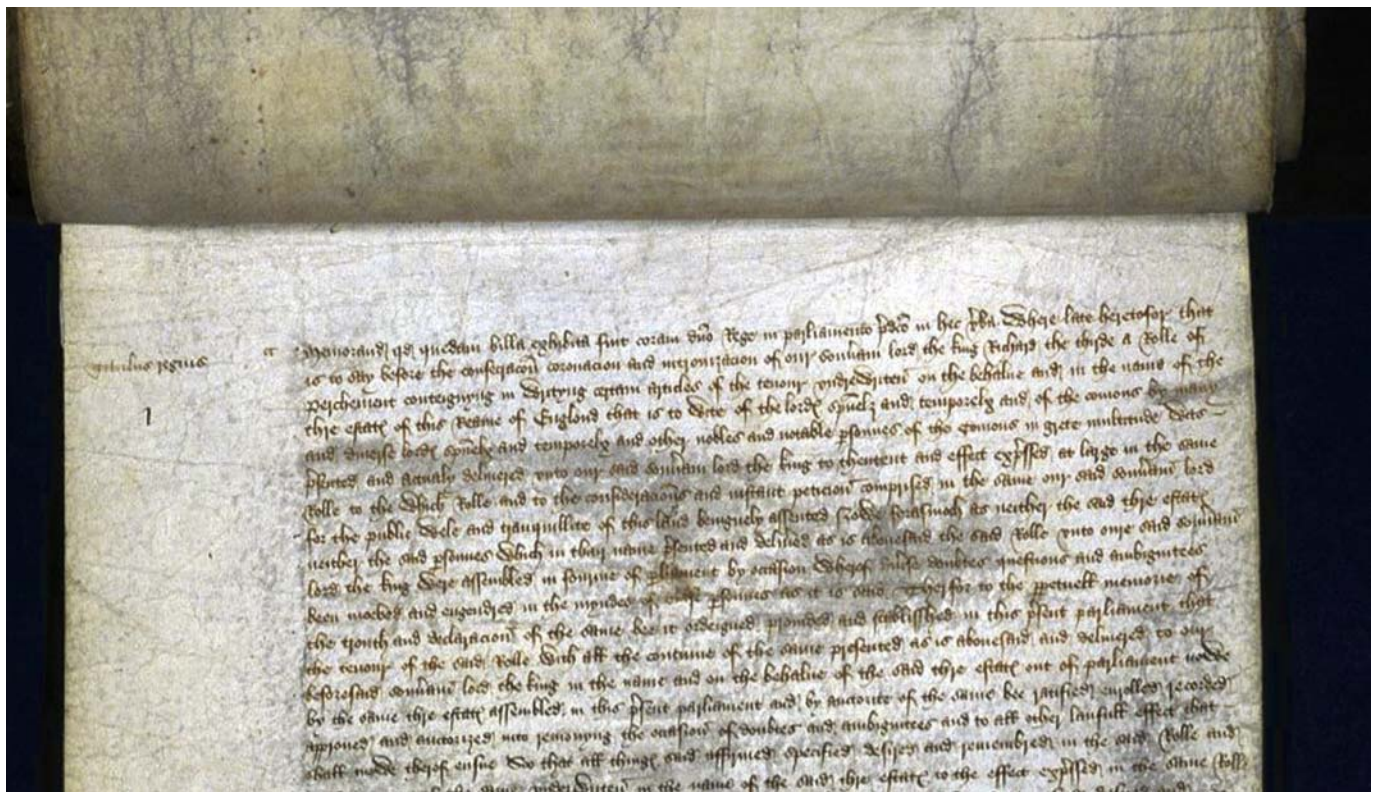 titulus regius
Memorand qd quedam billa exhibita fuit coram dño Rege in parliamento p̃dc̃o in hec v̾ba Where late heretofor that
is to say before the consecracoñ coronacion and intronizacion of our sov̾aiñ lord the king Richard the thirde a Rolle of
perchement conteignyng in writyng certain articles of the tenour undrewriteñ on the behalve and in the name of the
thre estatꝭ of this Reame of Englond that is to wite of the lordꝭ sp̃uelx and temporelx and of the comons by many
and diverse lordꝭ sp̃uelx and temporelx and other nobles and notable p̱sonnes of the comons in grete multitude was
p̃sented and actualy delivered unto our said sov̾aiñ lord the king to thentent and effect exp̃ssed at large in the same
Rolle to the which Rolle and to the consideracioñs and instant peticioñ comprised in the same our said sov̾aiñ lord
for the public wele and tranquillite of this land benignely assented Nowe forasmoch as neither the said thre estatꝭ
neither the said p̱sonnes which in thair name p̃sented and deliv̾ed as is abovesaid the said Rolle unto oure said sov̾aiñ
lord the king were assembled in fourme of p̱liament by occasion wherof div̾se doubtes questions and ambiguitees
been moeved and engendred in the myndes of p̱sonnes as it is said Therfor to the p̱petuell memorie of
the trouth and declaracioñ of the same bee it ordeigned provided and stablisshed in this p̃sent parliament that
the tenour of the said Rolle with all the contynue of the same presented as is abovesaid and delivered to our
beforesaid sov̾aiñ lord the king in the name and on the behalve of the said thre estatꝭ out of parliament nowe
by the same thre estatꝭ assembled in this p̃sent parliament and by auctorite of the same bee ratified enrolled recorded
approved and auctorized into removyng the occasioñ of doubtes and ambiguitees and to all other laufull effect that
shall mowe therof ensue So that all thingꝭ said affirmed specified desired and remembred in the said Rolle and
in the same undrewriteñ in the name of the said thre estatꝭ to the effect exp̃ssed in the same Rolle